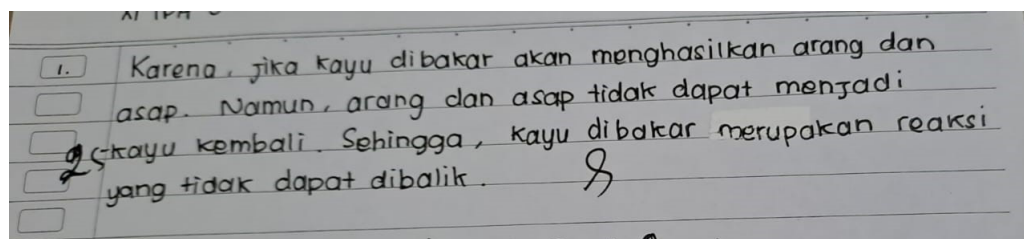 XI IPA
1. Karena, jika kayu dibakar akan menghasilkan arang dan
asap. Namun, arang dan asap tidak dapat menjadi
kayu kembali. Sehingga, kayu dibakar merupakan reaksi
yang tidak dapat dibalik.